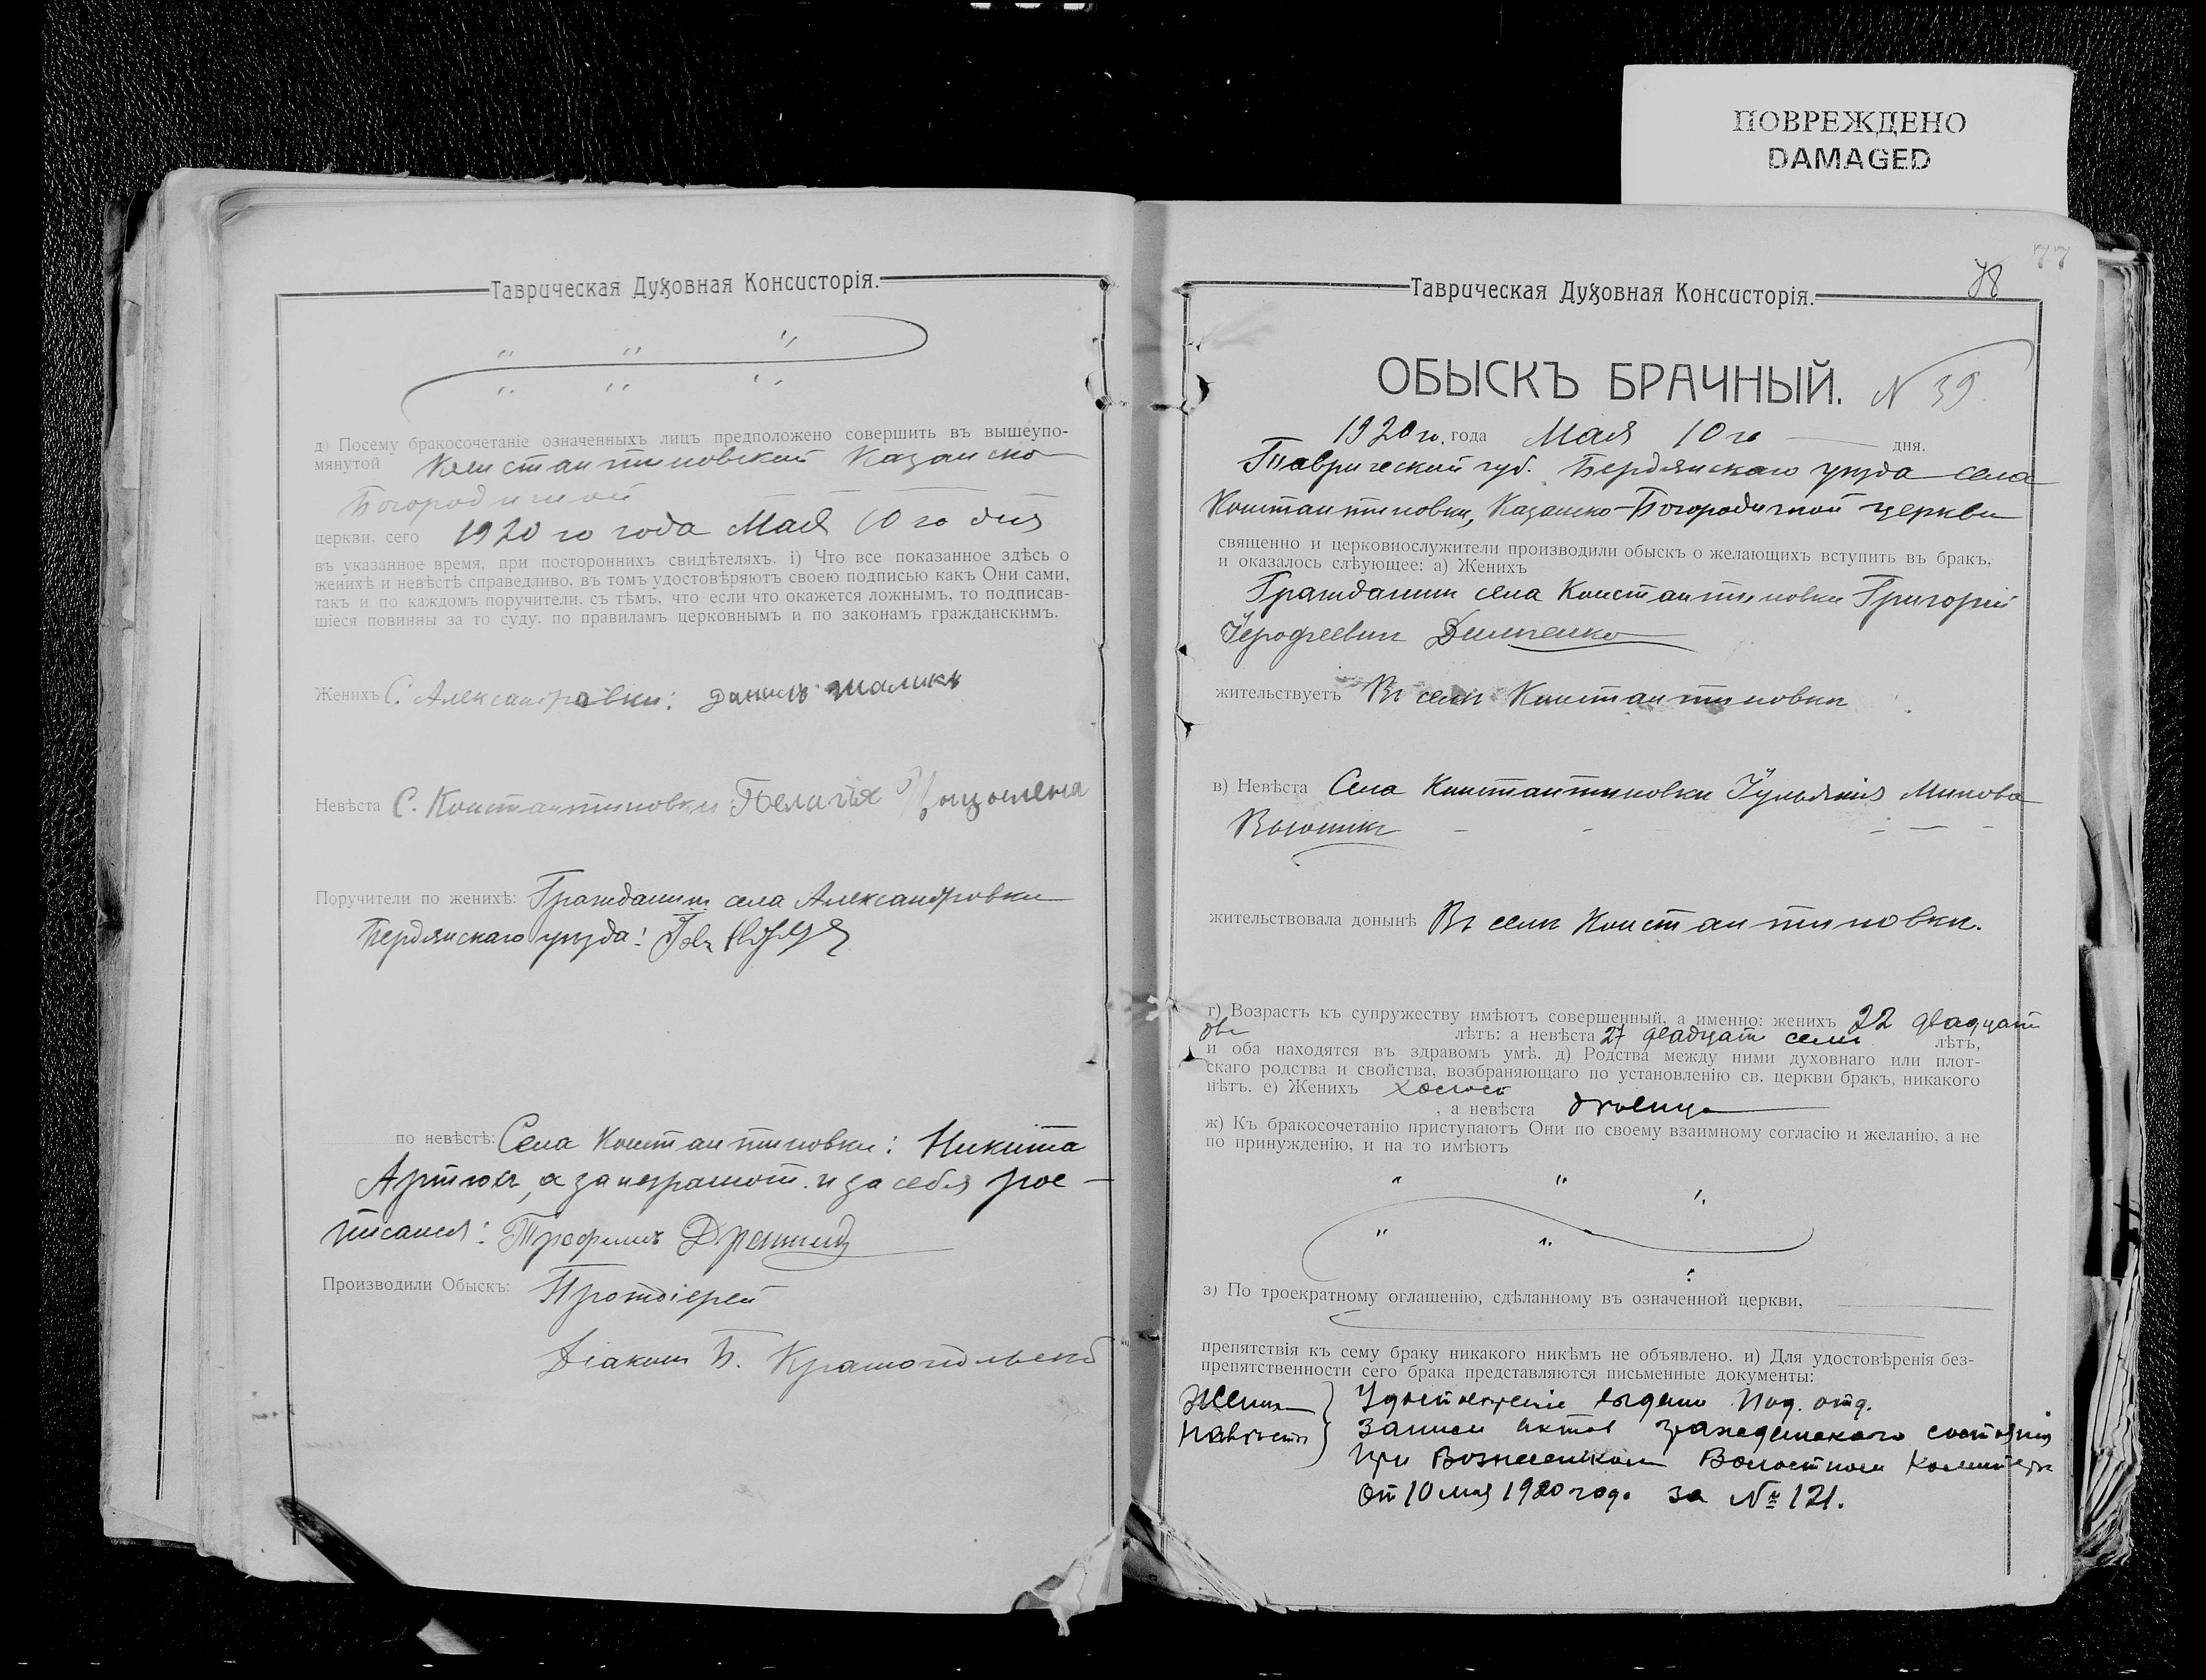 ПОВРЕЖДЕНО
DAMAGED
Таврическая Духовная Консисторія.
д) Посему бракосочетаніе означенныхъ лицъ предположено совершить въ вышеупо-
мянутой Константиновской Казанско
Богородичной
церкви, сего 1920 го года Мая 10 го дня
въ указанное время, при постороннихъ свидѣтеляхъ. і) Что все показанное здѣсь о
женихѣ и невѣстѣ справедливо, въ томъ удостовѣряютъ своею подписью какъ Они сами,
такъ и по каждомъ поручители, съ тѣмъ, что если что окажется ложнымъ, то подписав-
шіеся повинны за то суду, по правиламъ церковнымъ и по законамъ гражданскимъ.
Женихъ С. Александровки: Данилъ Маликъ
Невѣста С. Константиновки Пелагія
Поручители по женихѣ: Гражданинъ села Александровки
Бердянскаго уѣзда:
по невѣстѣ: Села Константиновки: Никита
Артюхъ, а за неграмотн. и за себя рос-
писался: Трофимъ
Производили Обыскъ: Протоіерей
Діаконъ Б.
77
78
Таврическая Духовная Консисторія.
ОБЫСКЪ БРАЧНЫЙ. N 39
1920 го. года Мая 10 го дня.
Таврической губ. Бердянскаго уѣзда села
Константиновки, Казанско-Богородичной церкви
священно и церковнослужители производили обыскъ о желающихъ вступить въ бракъ,
и оказалось слѣующее: а) Женихъ
Гражданинъ села Константиновки Григорій
Іерофеевичъ Демченко
жительствуетъ Въ селѣ Константиновкѣ
в) Невѣста Села Константиновки Іуліанія Минова
жительствовала донынѣ Въ селѣ Константиновкѣ.
г) Возрастъ къ супружеству имѣютъ совершенный, а именно: женихъ 22 двадцать
два лѣтъ: а невѣста 27 двадцать семь лѣтъ,
и оба находятся въ здравомъ умѣ. д) Родства между ними духовнаго или плот-
скаго родства и свойства, возбраняющаго по установленію св. церкви бракъ, никакого
нѣтъ. е) Женихъ холостъ
, а невѣста дѣвица
ж) Къ бракосочетанію приступаютъ Они по своему взаимному согласію и желанію, а не
по принужденію, и на то имѣютъ
з) По троекратному оглашенію, сдѣланному въ означенной церкви,
препятствія къ сему браку никакого никѣмъ не объявлено. и) Для удостовѣренія без-
препятственности сего брака представляются письменные документы:
Жениха Удостовѣреніе выдано Под. отд.
Невѣсты Записи актов гражданскаго состоянія
при Вознесенском Волостном Комитетѣ
от 10 мая 1920 года за № 121.